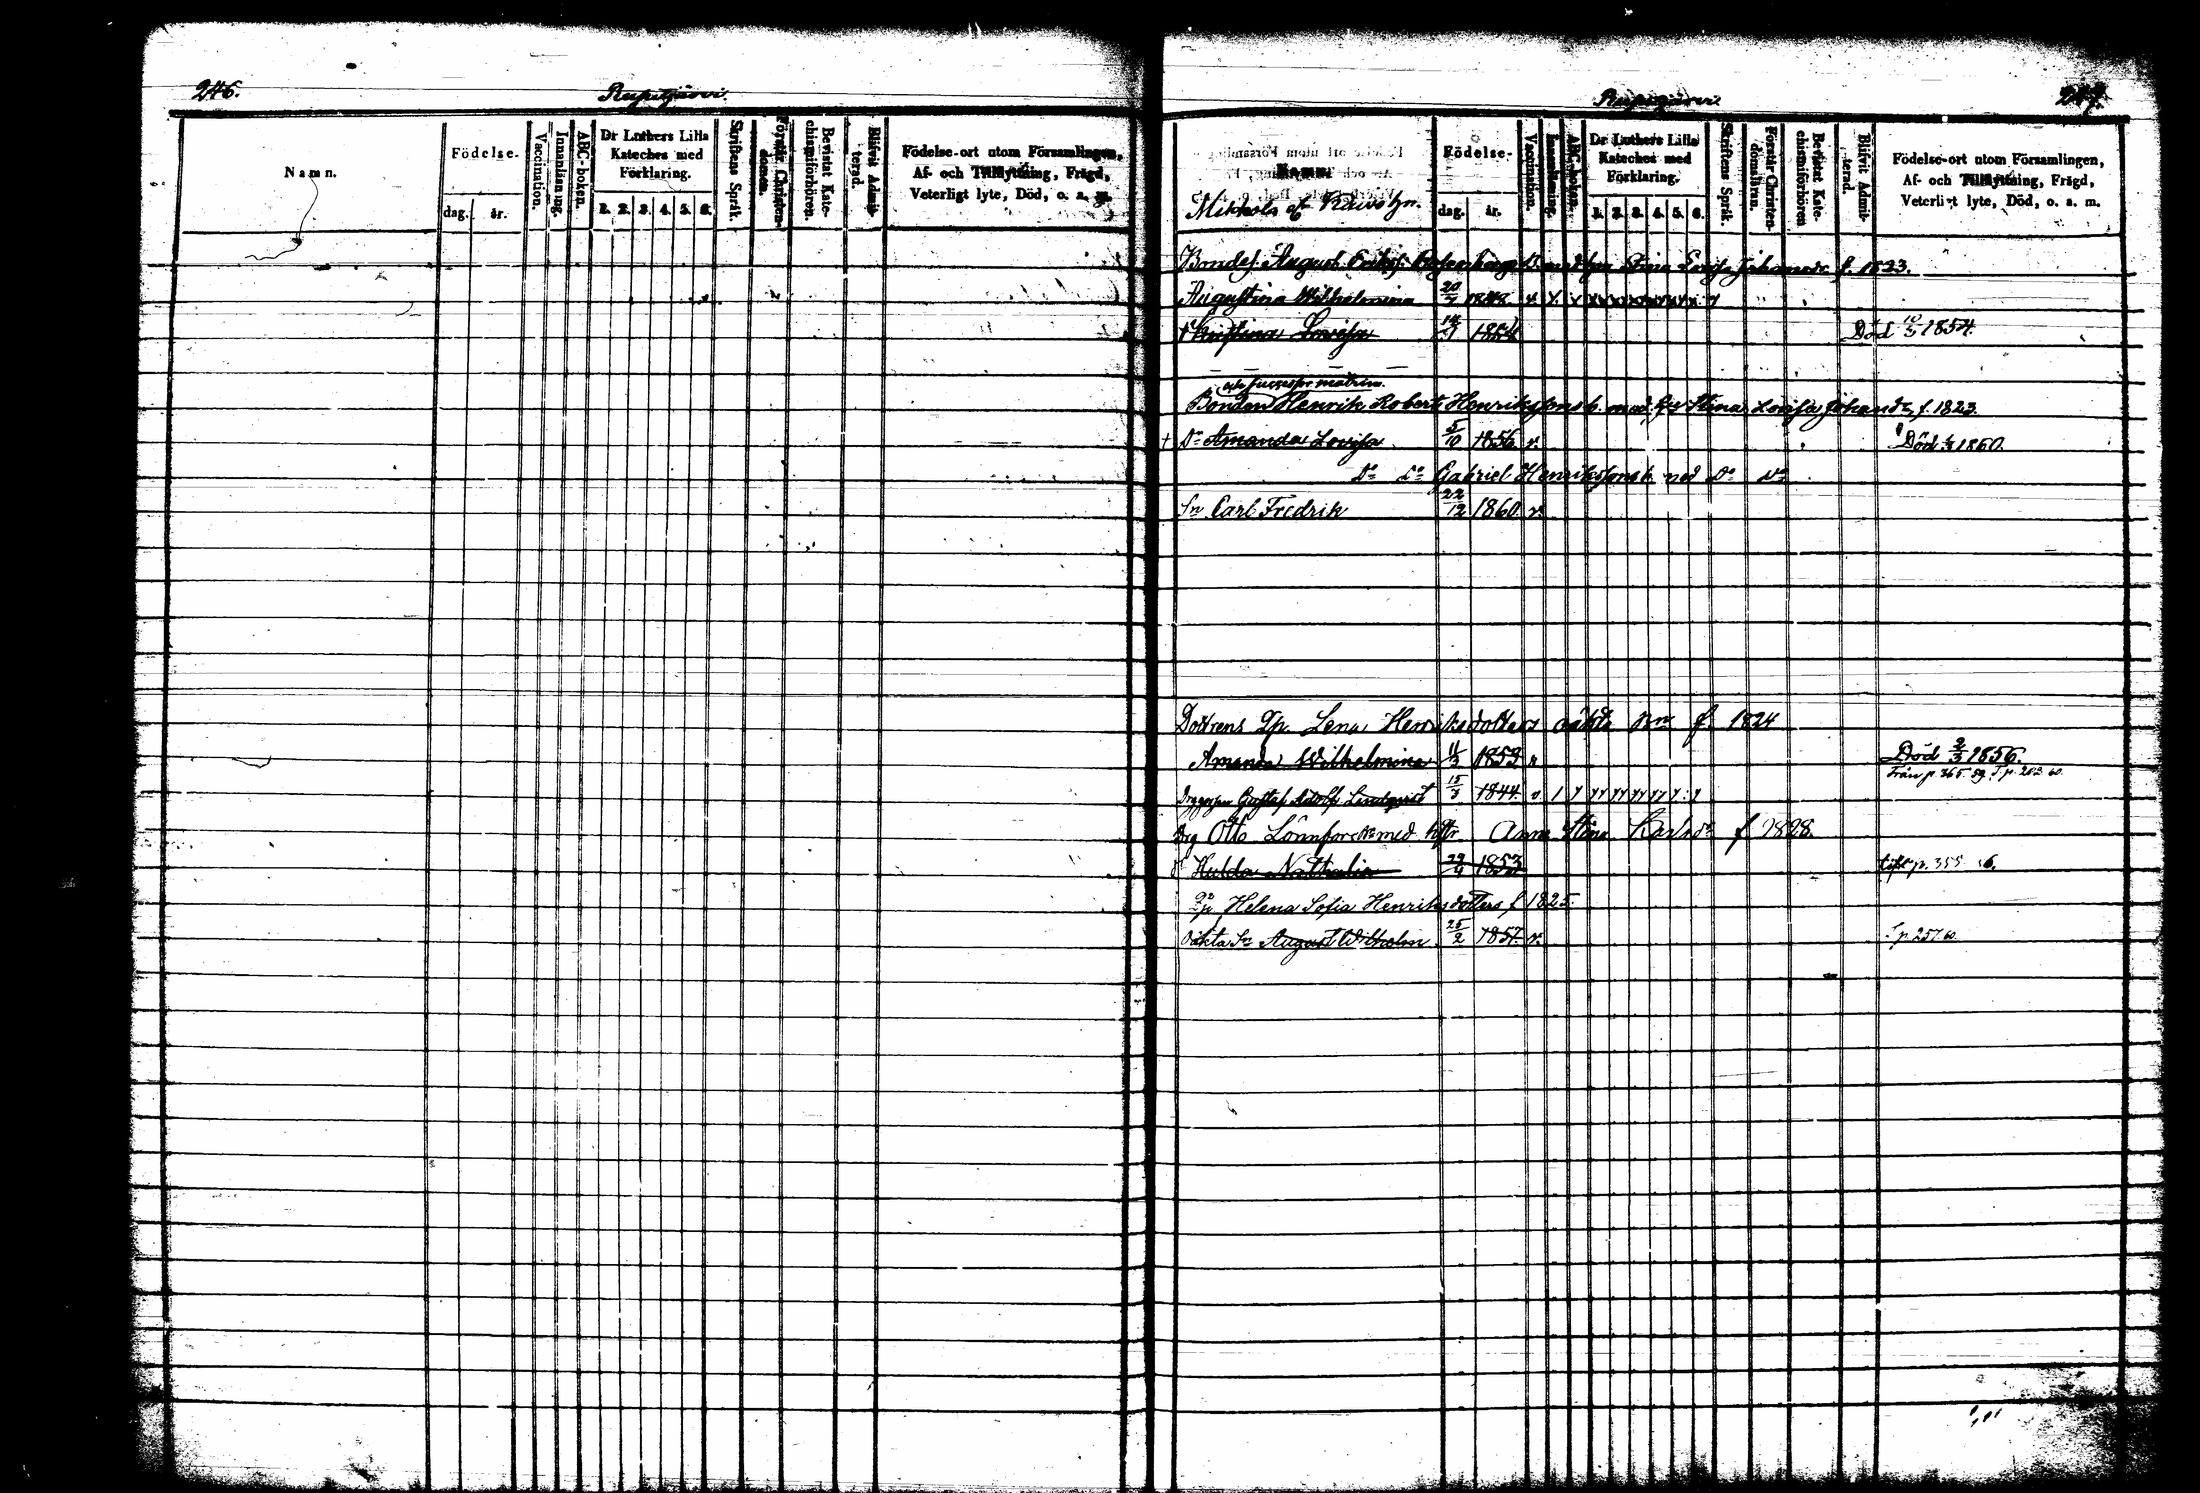 246.
Rupitjärvi.
Namn.
Födelse-
dag.
år.
Vaccination.
Innanläsning.
ABC-boken.
Dr Luthers Lilla Kateches med Förklaring.
1. 2. 3. 4. 5. 6.
Skriftens Språk.
Förstår Christendomen.
Bevistat Katechismiförhören.
Blifvit Admitterad.
Födelse-ort utom Församlingen,
Af- och Tillflyttning, Frägd,
Veterligt lyte, Död, o. s. m.
Rupitjärvi.
247.
Namn.
Födelse-
dag.
år.
Vaccination.
Innanläsning.
ABC-boken.
Dr Luthers Lilla Kateches med Förklaring.
1. 2. 3. 4. 5. 6.
Skriftens Språk.
Förstår Christendomsläran.
Bevistat Katechismiförhören
Blifvit Admitterad.
Födelse-ort utom Församlingen,
Af- och Tillflyttning, Frägd,
Veterligt lyte, Död, o. s. m.
Stina Lovisa Johansdr f. 1823.
Augustina Wilhelmina 20/7 1848. v.
Kristina Lovisa 1854 Död 10/3 1854.
Bonden Henrik Robert Henrikssons b. med Stina Lovisa Johansdr, f. 1823.
† Dr Amanda Lovisa 5/10 1856 v. Död 1860.
Do Do Gabriel Henrikssons b. med Do Do
Sn Carl Fredrik 22/12 1860 v.
Dottrens Qp. Lena Henriksdotters oäkta f. 1824
Amanda Wilhelmina 11/3 1853 v Död 2/3 1856.
Från p. 365. 59. T. p. 203. 60.
Gustaf Adolf Lindqvist 15/3 1844. v
Drg Otto Lönnfors med hstr Anna Stina Karlsdr f 1828.
Hulda Nathalia 29/4 1853 p. 355
Qp Helena Sofia Henriksdotters f 1825.
oäkta Sn August Wilhelm 25/2 1857. v. p. 257. 60.